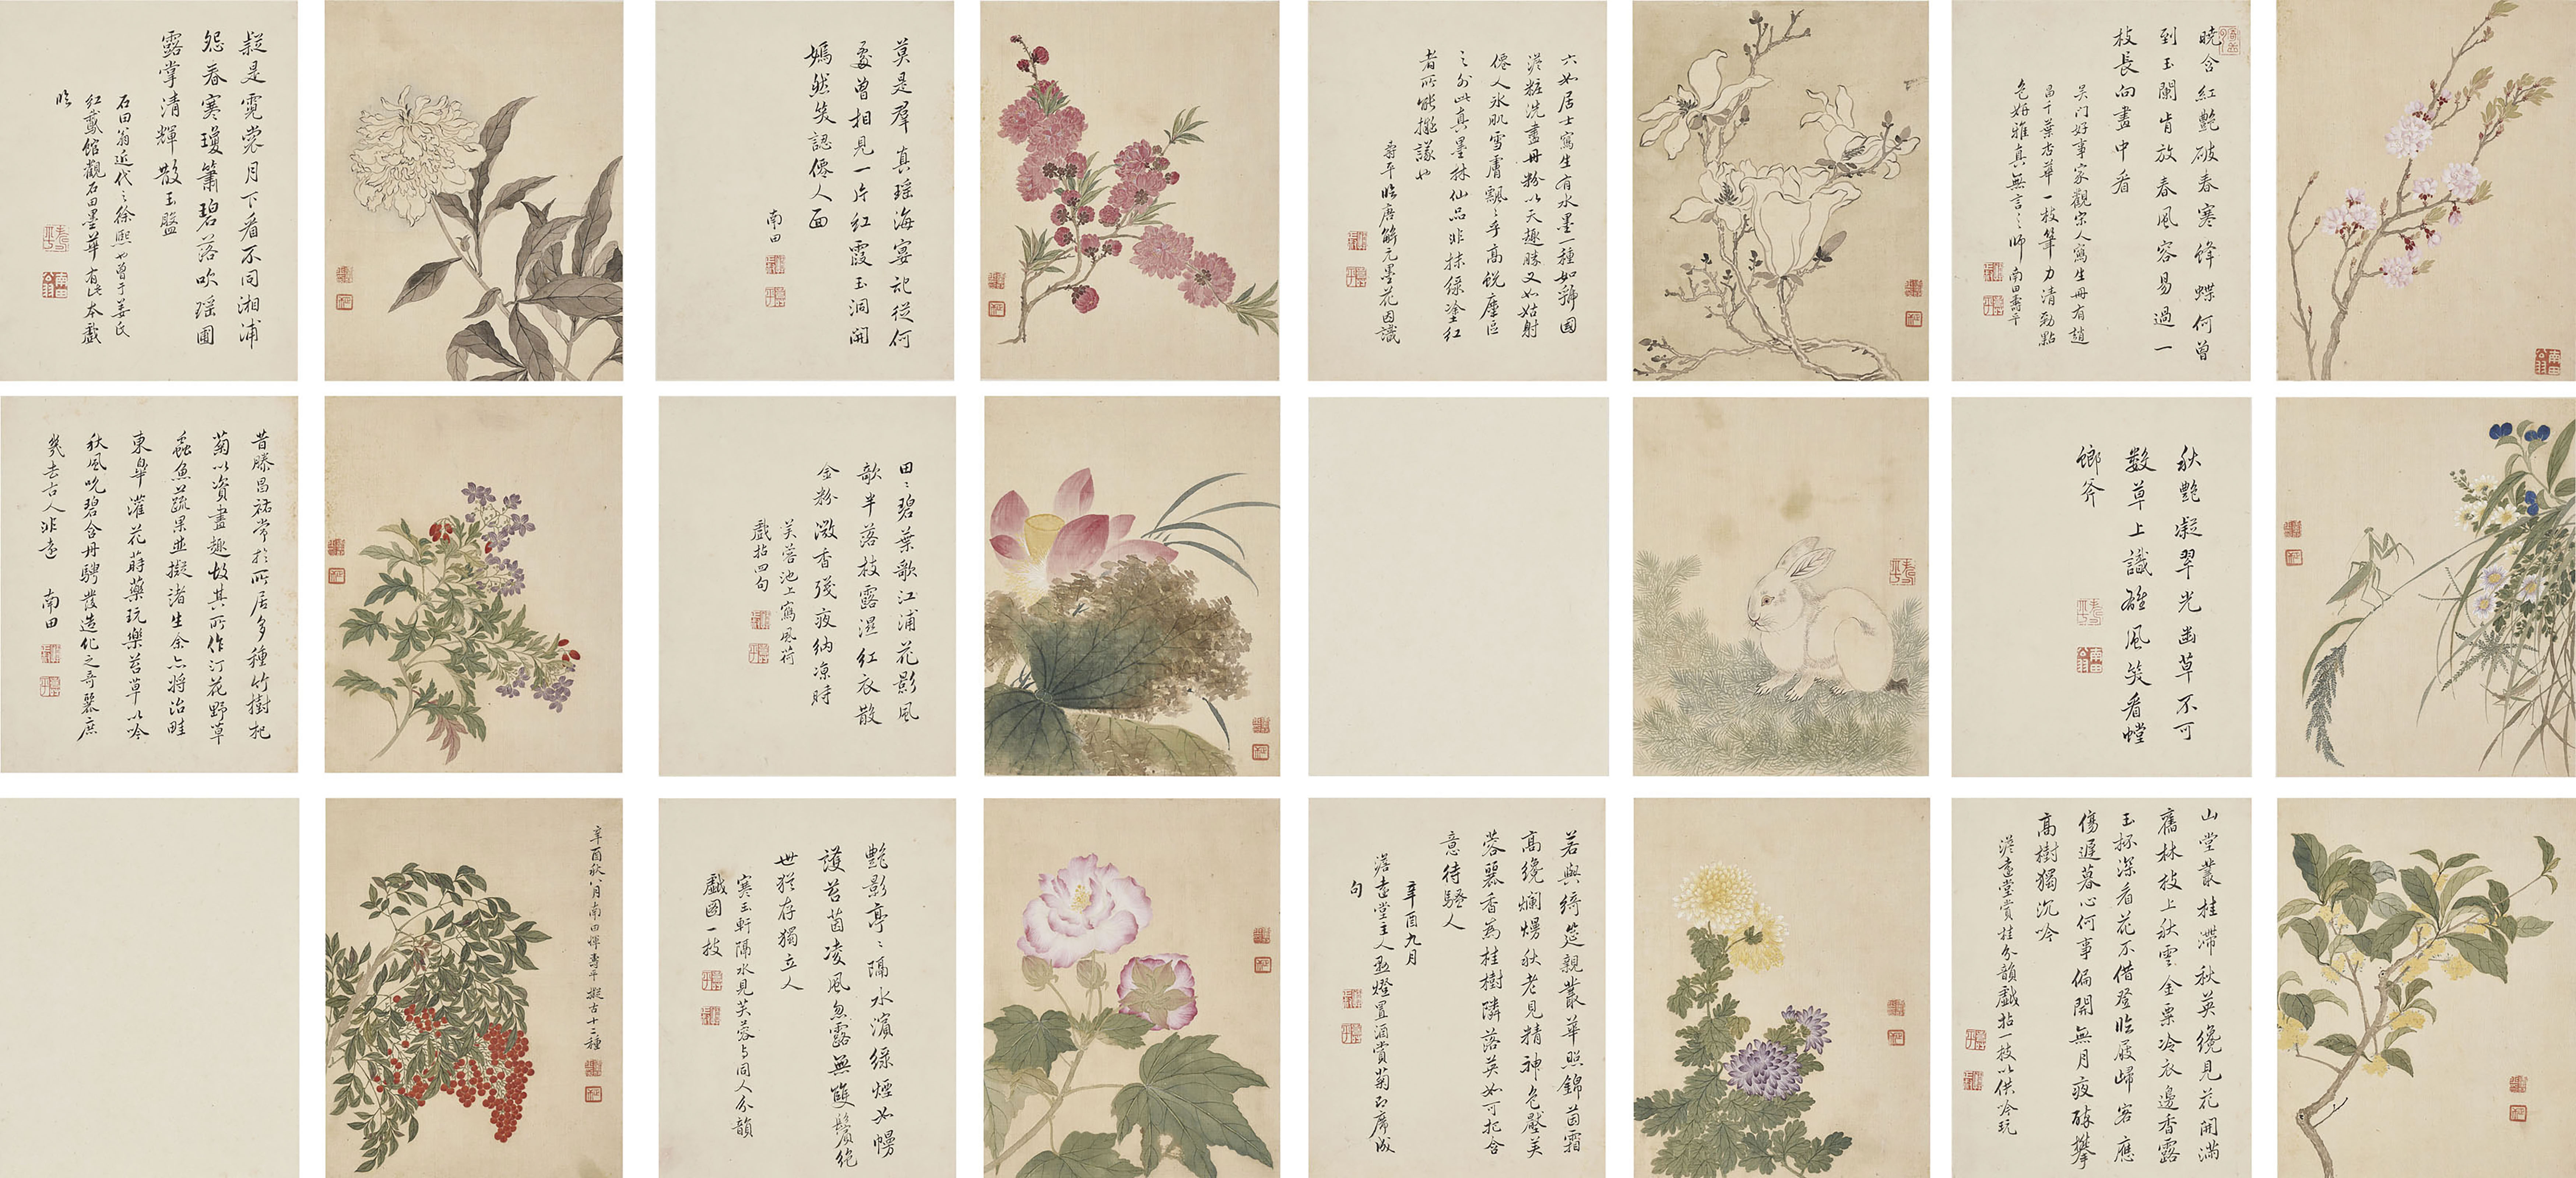 曉含紅艷破春寒蜂蝶何曾
到玉闌肯放春風容易過一
枝長向畫中看
吳門好事家觀宋人寫生冊有趙
昌千葉杏華一枝筆力清勁點
色妍雅真無言之師 南田壽平
六如居士寫生有水墨一種如虢國
淡粧洗盡丹粉以天趣勝又如姑射
僊人氷肌雪膚飄〻乎高蛻塵區
之外此真墨林仙品非抹綠塗紅
者所能擬議也
壽平臨唐解元墨花因識
莫是群真瑤海宴記從何
處曾相見一片紅霞玉洞開
嫣然笑認僊人面
南田
疑是霓裳月下看不同湘浦
怨春寒瓊簫碧落吹瑤圃
露掌清輝散玉盤
石田翁近代之徐熙也曾于姜氏
紅鵞館觀石田墨華有此本戲
臨
秋艷凝翠光幽草不可
數草上識雌風笑看螳
螂斧
田〻碧葉歌江浦花影風
歌半落枝露濕紅衣散
金粉微香殘夜納凉時
芙蓉池上寫風荷
戲拈四句
昔滕昌祐常於所居多種竹樹杞
菊以資畫趣故其所作汀花野草
蟲魚蔬果並擬諸生余亦將治畦
東臯灌花蒔藥玩樂苔草以吟
秋風吮碧含丹騁發造化之奇麗庶
幾去古人非遠 南田
山堂叢桂滯秋英纔見花開滿
舊林枝上秋雲金粟冷衣邊香露
玉杯深看花不借登臨屐歸客應
傷遲暮心何事偏開無月夜醉攀
高樹獨沉吟
澹遠堂賞桂分韻戲拈一枝以供吟玩
若與綺筵親叢華照錦茵霜
高纔爛熳秋老見精神色壓芙
蓉麗香為桂樹隣落英如可把含
意待騷人
辛酉九月
澹遠堂主人張燈置酒賞菊即席成
句
艷影亭〻隔水濱綠煙如幔
護苔茵凌風忽露無雙鬢絕
世猶存獨立人
寒玉軒隔水見芙蓉与同人分韻
戲圖一枝
辛酉秋八月南田惲壽平擬古十二種